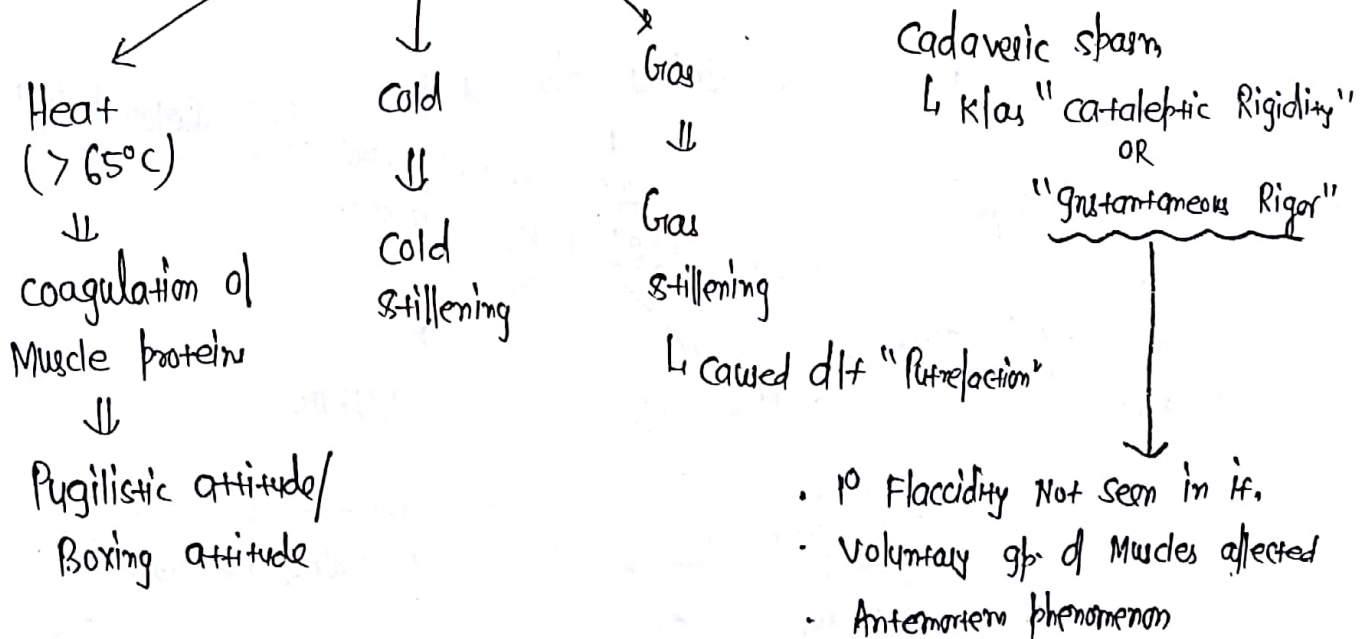 Heat
(> 65°C)
⇓
coagulation of
Muscle proteins
⇓
Pugilistic attitude/
Boxing attitude
Cold
⇓
Cold
stiffening
Gas
⇓
Gas
stiffening
↳ caused d/t "Putrefaction"
Cadaveric spasm
↳ k/as "cataleptic Rigidity"
OR
"Instantaneous Rigor"
• 1° Flaccidity Not seen in it.
• Voluntary gp. of Muscles affected
• Antemortem phenomenon